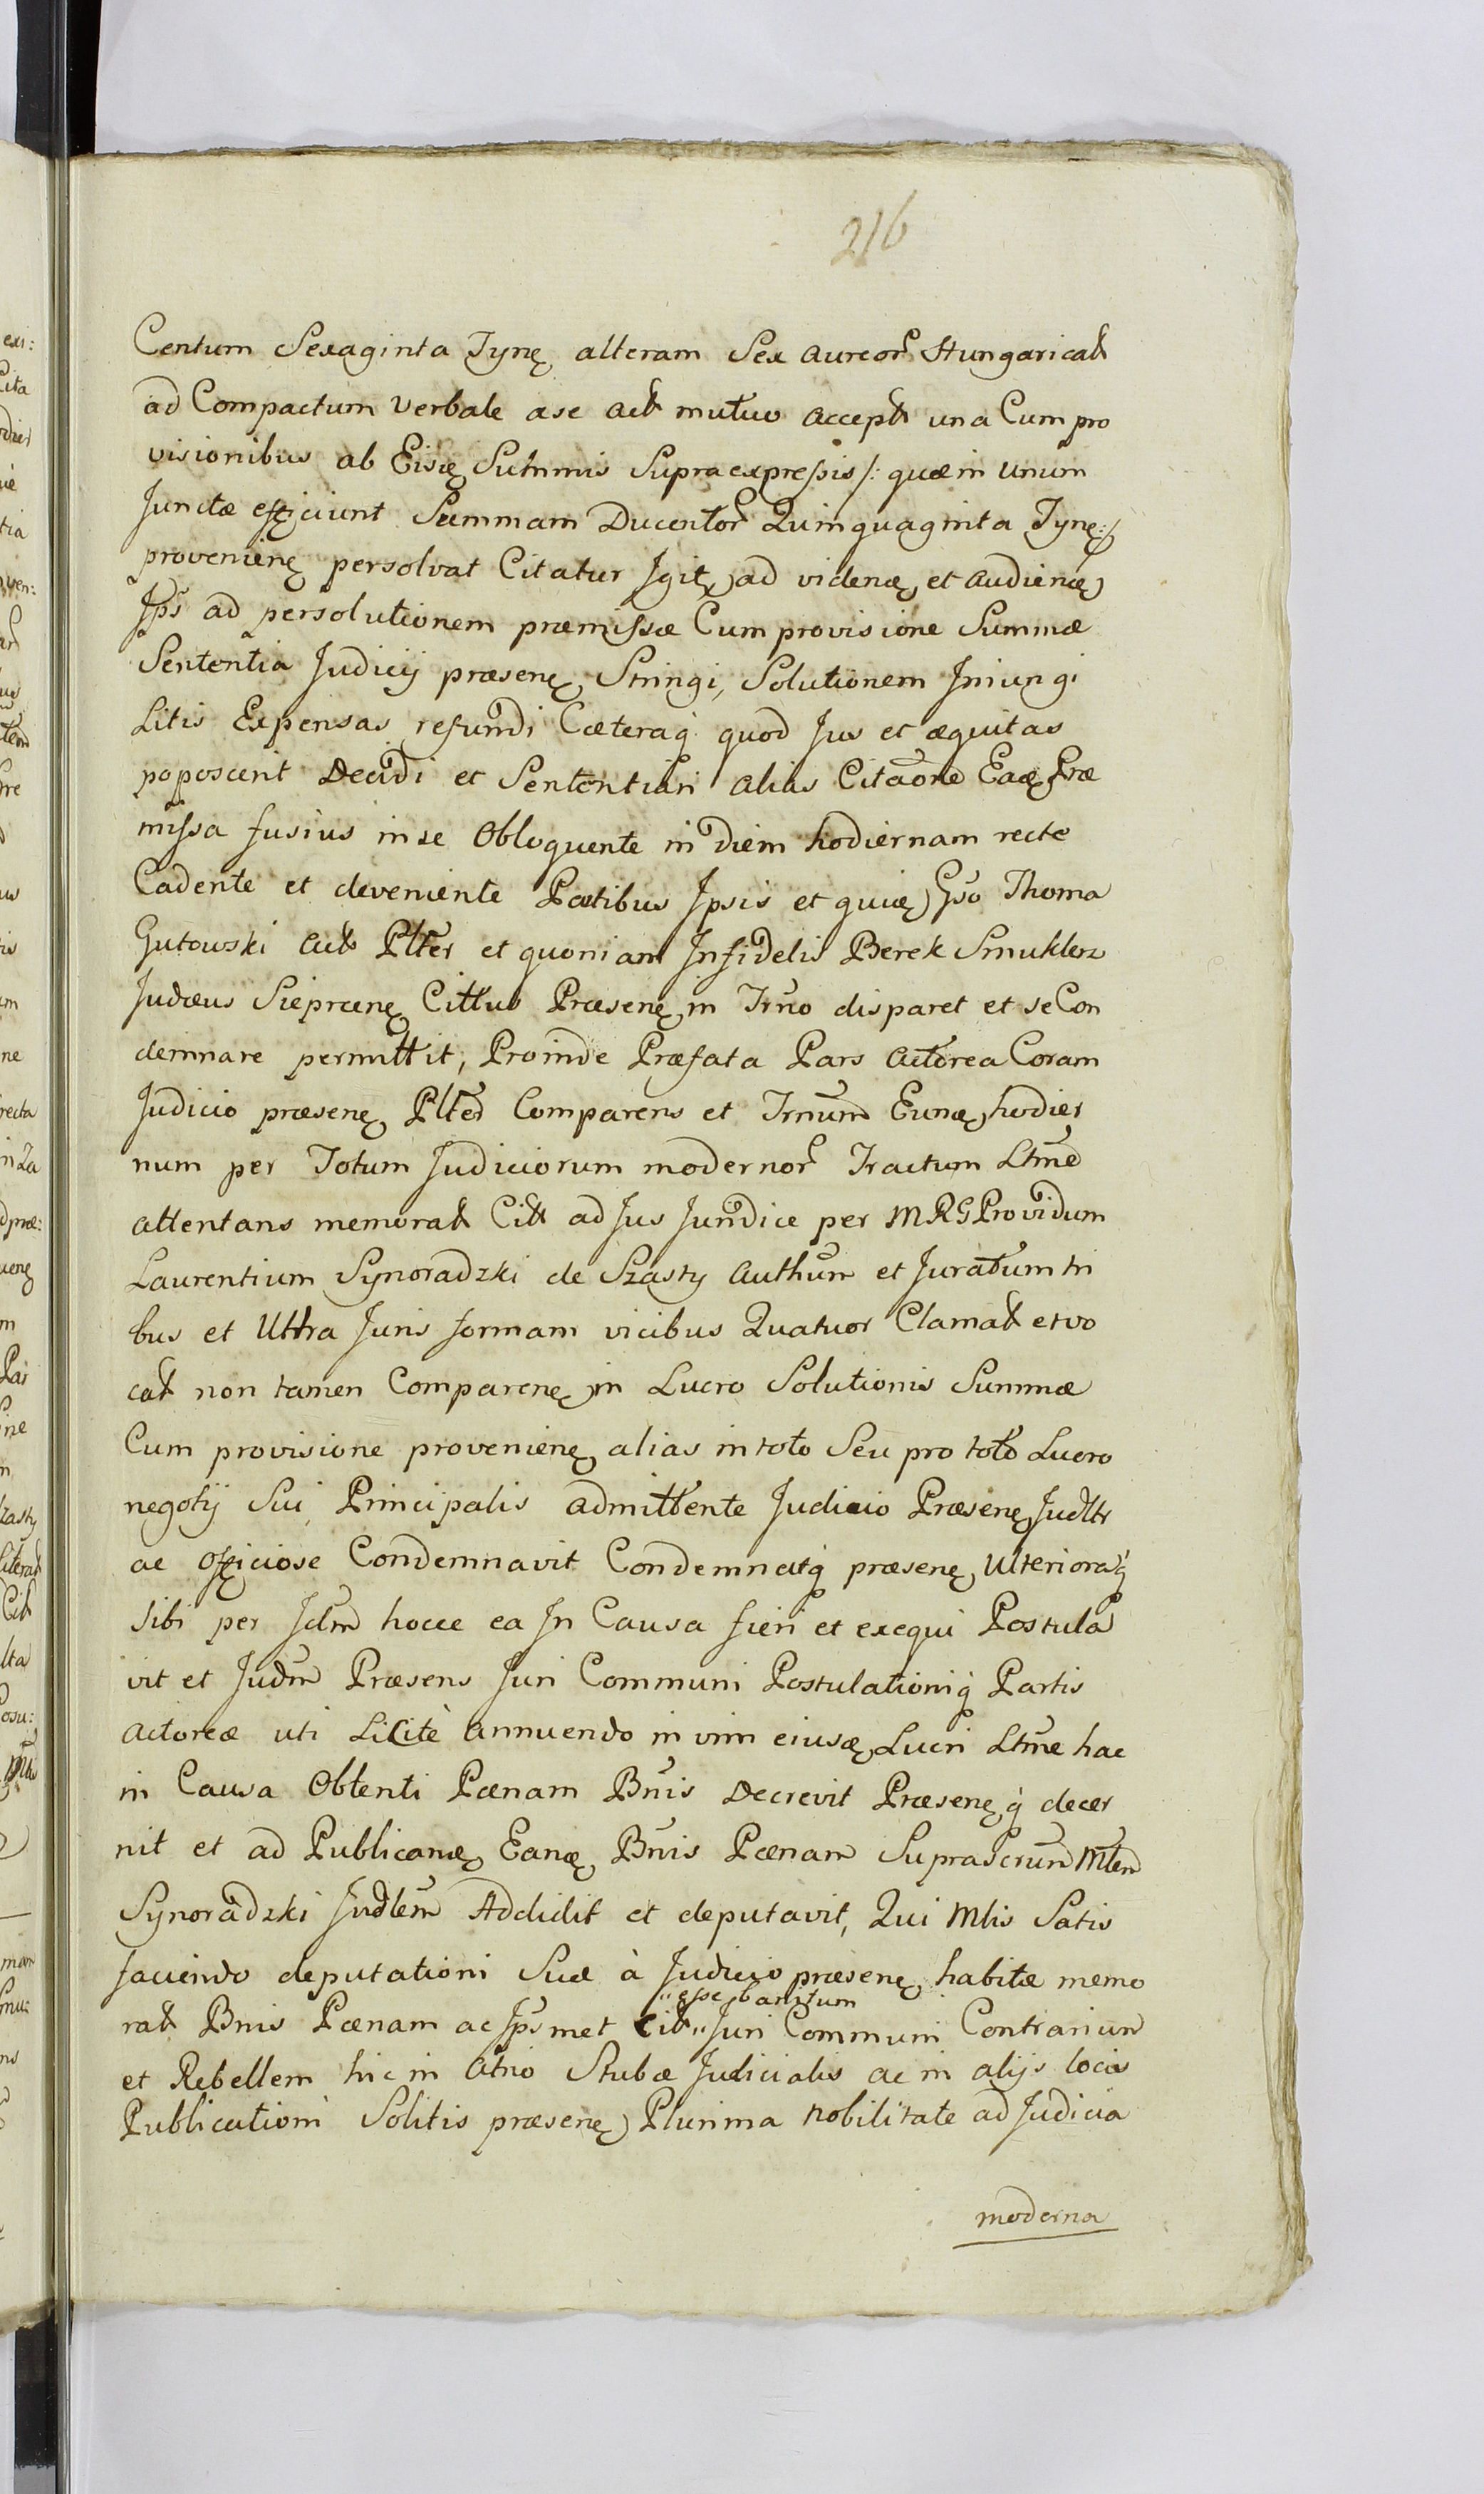 216
Centum Sexaginta Tynę alteram Sex aureor Hungarical
ad Compactum Verbale a se act mutuo accept una Cum pro
visionibus ab Eisdę Summis Supra expressis /: quæ in unum
Junctæ efficiunt Summam Ducentor Quinquaginta Tynę :/
provenienę persolvat Citatur Igit ad videnę et audienę
Ips ad persolutionem præmissæ Cum provisione Summæ
Sententia Judicij præsenę Stringi, Solutionem Iniungi
Litis Expensas refundi Cæteraq quod Jus et æquitas
poposcerit Decidi et Sententiari alias Citaone Eadę Præ
missa fusius in se Obloquente in diem hodiernam recte
Cadente et deveniente Partibus Ipsis et quidę Gso Thoma
Gutowski Act Plter et quoniam Infidelis Berek Smuklerz
Judæus Sieprcenę Cittus Præsenę in Trno disparet et se Con
demnare permittit, Proinde Præfata Pars Actorea Coram
Judicio præsenę Plter Comparens et Trnum Eundę hodier
num per Totum Judiciorum modernor Tractum Ltme
attentans memorat Citt ad Jus Juridice per MRG Providum
Laurentium Synoradzki de Szasty Authum et Juratum tri
bus et Ultra Juris formam vicibus Quatuor Clamat et vo
cat non tamen Comparenę in Lucro Solutionis Summæ
Cum provisione provenienę alias in toto Seu pro toto Lucro
negotij Sui Principalis admittente Judicio Præsenę Judltr
ac officiose Condemnavit Condemnatq præsenę Ulterioraq
sibi per Jdm hocce ea In Causa fieri et exequi Postula
vit et Judm Præsens Juri Communi Postulationiq Partis
Actoreæ uti Licitè annuendo in vim eiusdę Lucri Ltme hac
in Causa Obtenti Pænam Bnis Decrevit Præsenę q decer
nit et ad Publicandę Eandę Bnis Pænam Suprascrum Mtem
Synoradzki Judlem Addidit et deputavit, Qui Mtis Satis
faciendo deputationi Suæ à Judicio præsenę habitæ memo
"esse banitum
rat Bnis Pænam ac Ips met Cit " Juri Communi Contrarium
et Rebellem hic in Atrio Stubæ Judicialis ac in alijs locis
Publicationi Solitis præsenę Plurima nobilitate ad Judicia
moderna